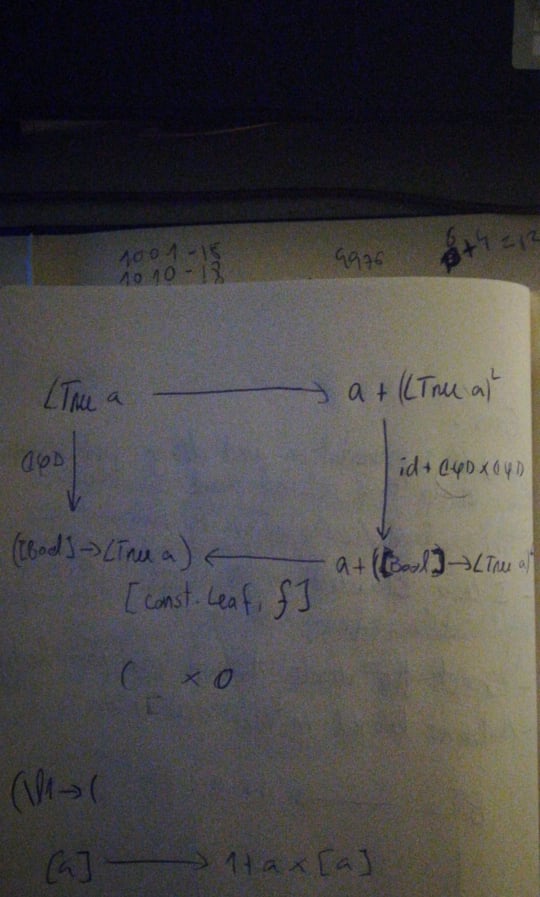 1001-18
1010-18
9976
6+4=12
LTree a → a + (LTree a)²
⦇φ⦈ id + ⦇φ⦈ x ⦇φ⦈
([Bool]→LTree a) ← a + ([Bool]→LTree a)²
[const.Leaf, f]
( x 0
(\l1→(
[a] → 1+a x [a]